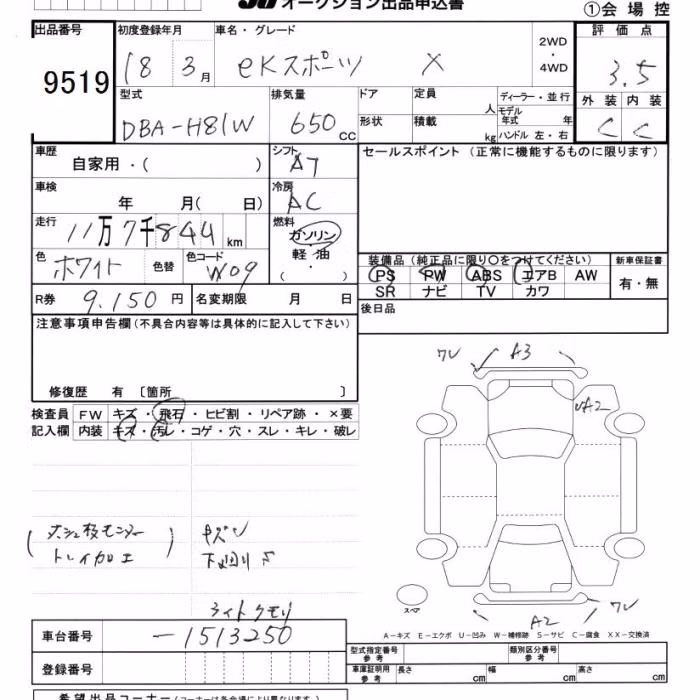 オークション出品申込書
①会場控
出品番号 9519
初度登録年月 18 3月
車名・グレード eKスポーツ X
2WD・4WD
評価点 3.5
外装 C 内装 C
型式 DBA-H81W
排気量 650cc
ドア 形状
定員 人 積載 kg
ディーラー・並行
モデル年式 年
ハンドル 左・右
車歴 自家用・( )
シフト AT
セールスポイント (正常に機能するものに限ります)
車検 年 月( 日)
冷房 AC
走行 11万7千844km
燃料 ガソリン・軽油 ( ・ )
色 ホワイト 色替
色コード W09
装備品 (純正品に限り○をつけてください)
PS PW ABS エアB AW
SR ナビ TV カワ
新車保証書 有・無
R券 9.150円
名変期限 月 日
後日品
注意事項申告欄(不具合内容等は具体的に記入して下さい)
修復歴 有 〔箇所 〕
検査員 FW キズ・飛石・ヒビ割・リペア跡・×要
記入欄 内装 キズ・汚レ・コゲ・穴・スレ・キレ・破レ
ワレ A3
A2
キズ
下廻りサ
トレイカロエ
ライトクモリ
スペア
A2 ワレ
A-キズ E-エクボ U-凹み W-補修跡 S-サビ C-腐食 XX-交換済
車台番号 -1513250
登録番号
型式指定番号 参考
類別区分番号 参考
車庫証明用 参考 長さ cm 幅 cm 高さ cm
希望出品コーナー(コーナーは各会場により異なります)